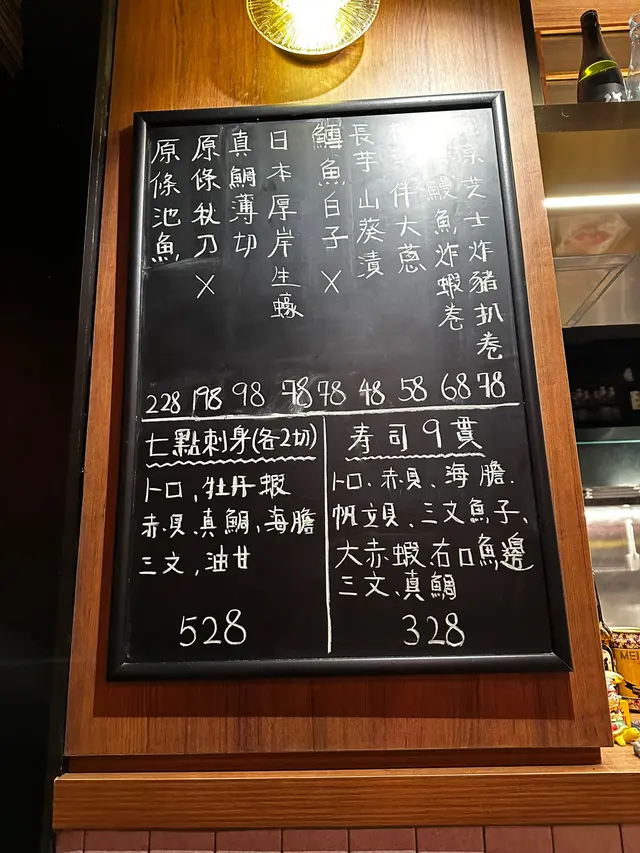 芝士炸豬扒卷 78
鰻魚炸蝦卷 68
伴大蔥 58
長芋山葵漬 48
魚白子 X 78
日本厚岸生蠔 78
真鯛薄切 98
原條秋刀 X 198
原條池魚 228
七點刺身(各2切)
トロ,牡丹蝦
赤貝、真鯛、海膽
三文,油甘
528
寿司9貫
トロ、赤貝、海膽、
帆立貝、三文魚子、
大赤蝦、右口魚邊
三文、真鯛
328